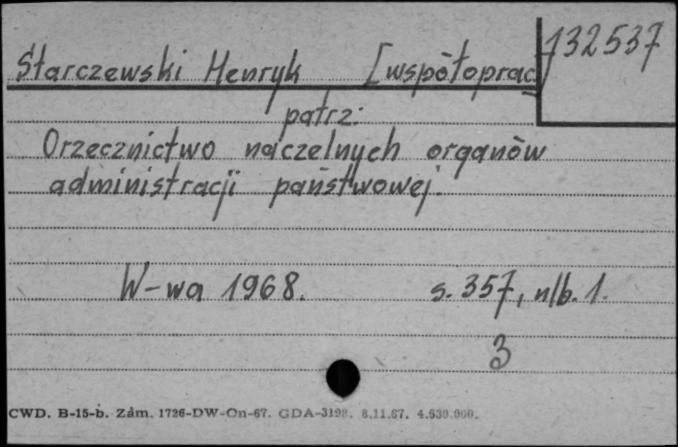 Starczewski Henryk [współoprac.]
132537
patrz:
Orzecznictwo naczelnych organów
administracji państwowej.
W-wa 1968. s. 357, nlb. 1.
3
CWD. B-15-b. Zám. 1726-DW-On-67. GDA-3198. 8.11.67. 4.530.000.